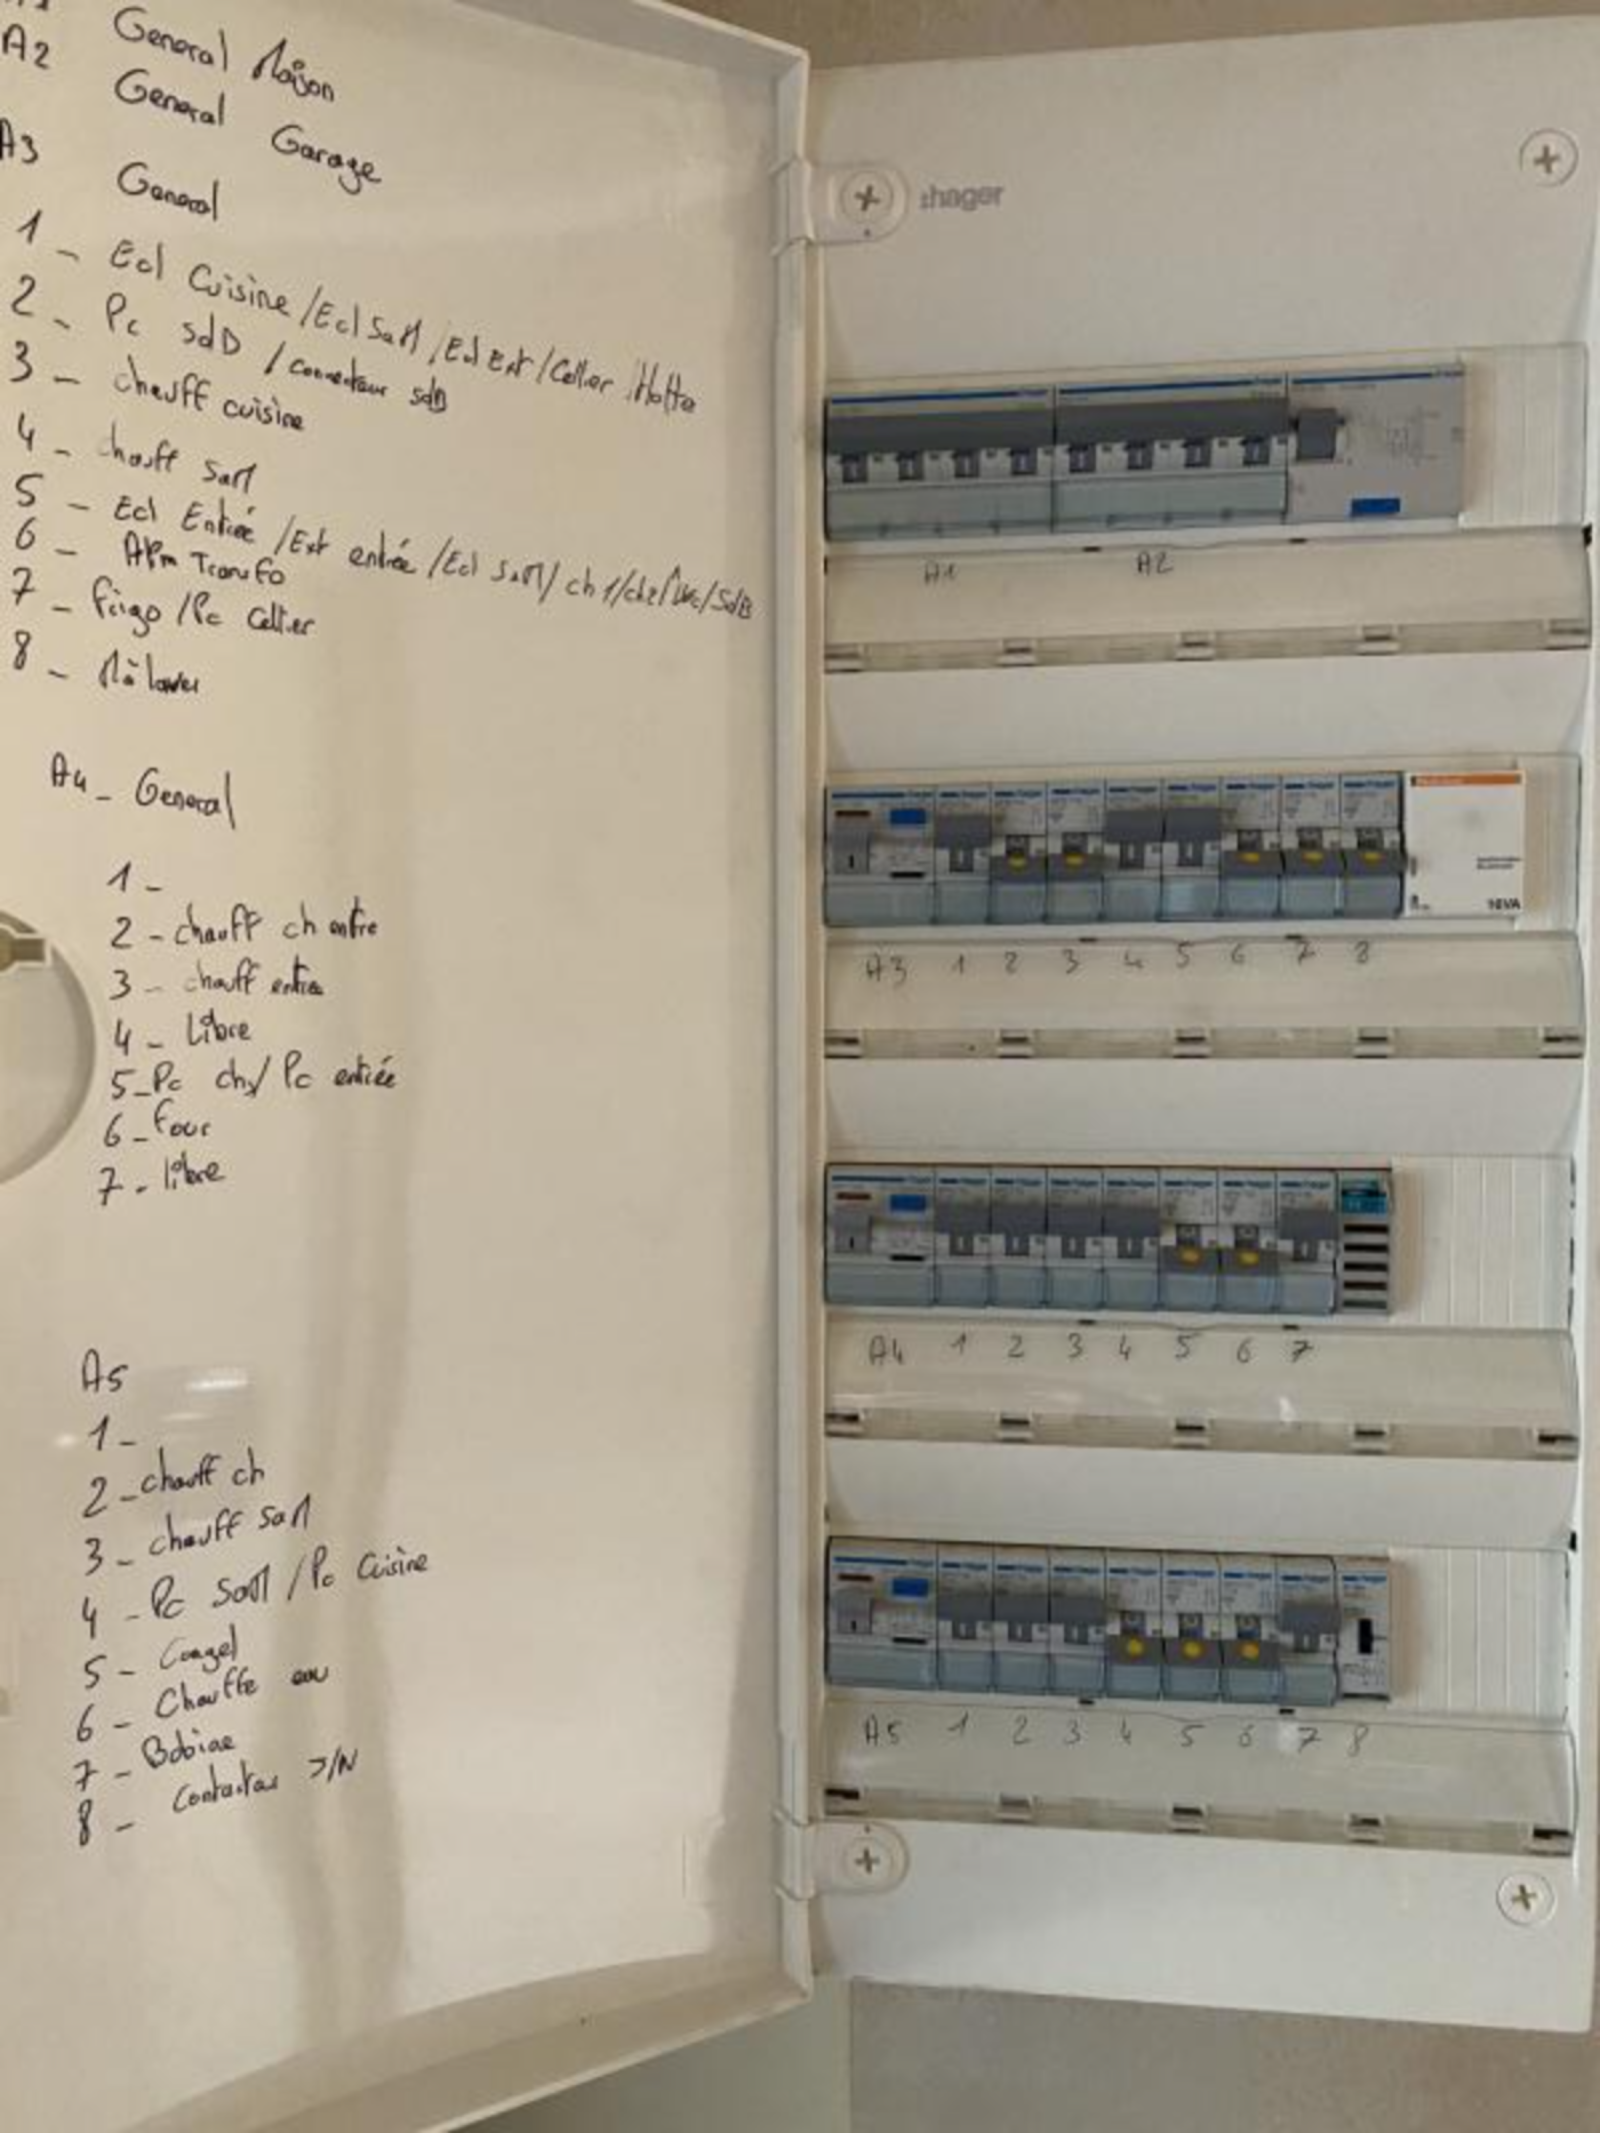 A2 General Maison
General Garage
A3 General
1 - Ecl Cuisine / Ecl SaM / Ecl Ext / Cellier / Hotte
2 - Pc sdD / connecteur sdB
3 - chauff cuisine
4 - chauff saM
5 - Ecl Entrée / Ext entrée / Ecl SaM / ch1 / ch2 / Wc / SdB
6 - Alim Transfo
7 - frigo / Pc Cellier
8 - Mà laver
A4 - General
1 -
2 - chauff ch entre
3 - chauff entre
4 - Libre
5 - Pc chs / Pc entrée
6 - four
7 - libre
A5
1 -
2 - chauff ch
3 - chauff saM
4 - Pc SaM / Pc Cuisine
5 - Congel
6 - Chauffe eau
7 - Bobine
8 - Contacteur J/N
:hager
A1 A2
16VA
A3 1 2 3 4 5 6 7 8
A4 1 2 3 4 5 6 7
A5 1 2 3 4 5 6 7 8